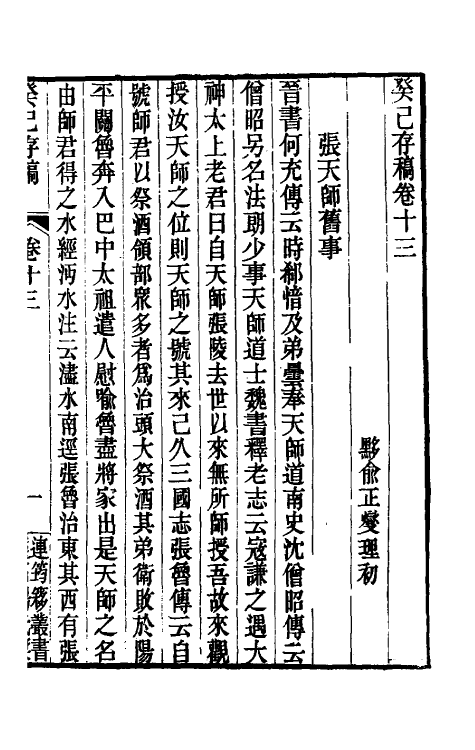 癸巳存稿卷十三
黟俞正燮理初
張天師舊事
晉書何充傳云時郗愔及弟曇奉天師道南史沈僧昭傳云
僧昭另名法朗少事天師道士魏書釋老志云寇謙之遇大
神太上老君曰自天師張陵去世以來無所師授吾故來觀
授汝天師之位則天師之號其來己久三國志張魯傳云自
號師君以祭酒領部衆多者爲治頭大祭酒其弟衛敗於陽
平關魯奔入巴中太祖遣人慰喻魯盡將家出是天師之名
由師君得之水經沔水注云濜水南逕張魯治東其西有張
癸巳存稿
卷十三
一
連筠簃叢書